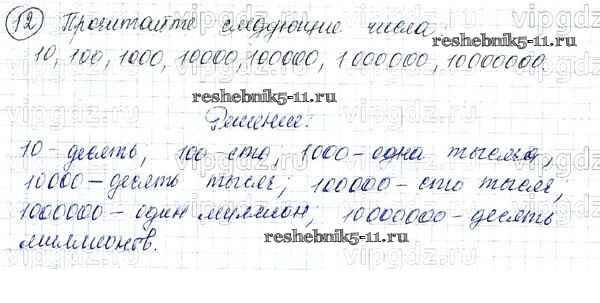 12 Прочитайте следующие числа:
10, 100, 1000, 10000, 100000, 1000000, 10000000.
reshebnik5-11.ru
reshebnik5-11.ru
Решение:
10 - десять; 100 - сто; 1000 - одна тысяча,
10000 - десять тысяч; 100000 - сто тысяч,
1000000 - один миллион; 10000000 - десять
миллионов.
reshebnik5-11.ru